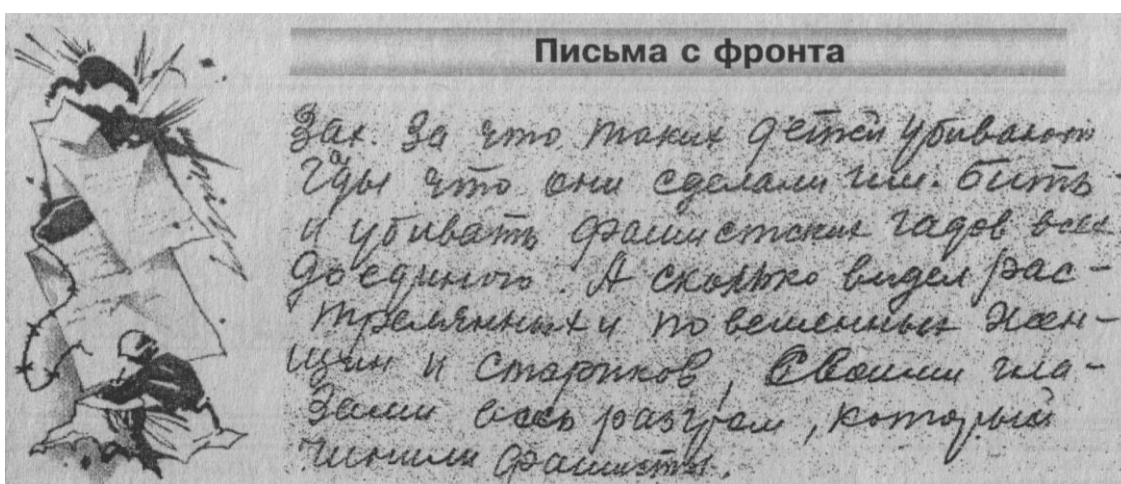 Письма с фронта
Зах. За что таких детей убивают
гады что они сделали им. бить
и убивать фашистских гадов всех
до единого. А сколько видел рас-
трелянных и повешенных жен-
щин и стариков, Своими гла-
зами весь разгром, который
чинили фашисты.